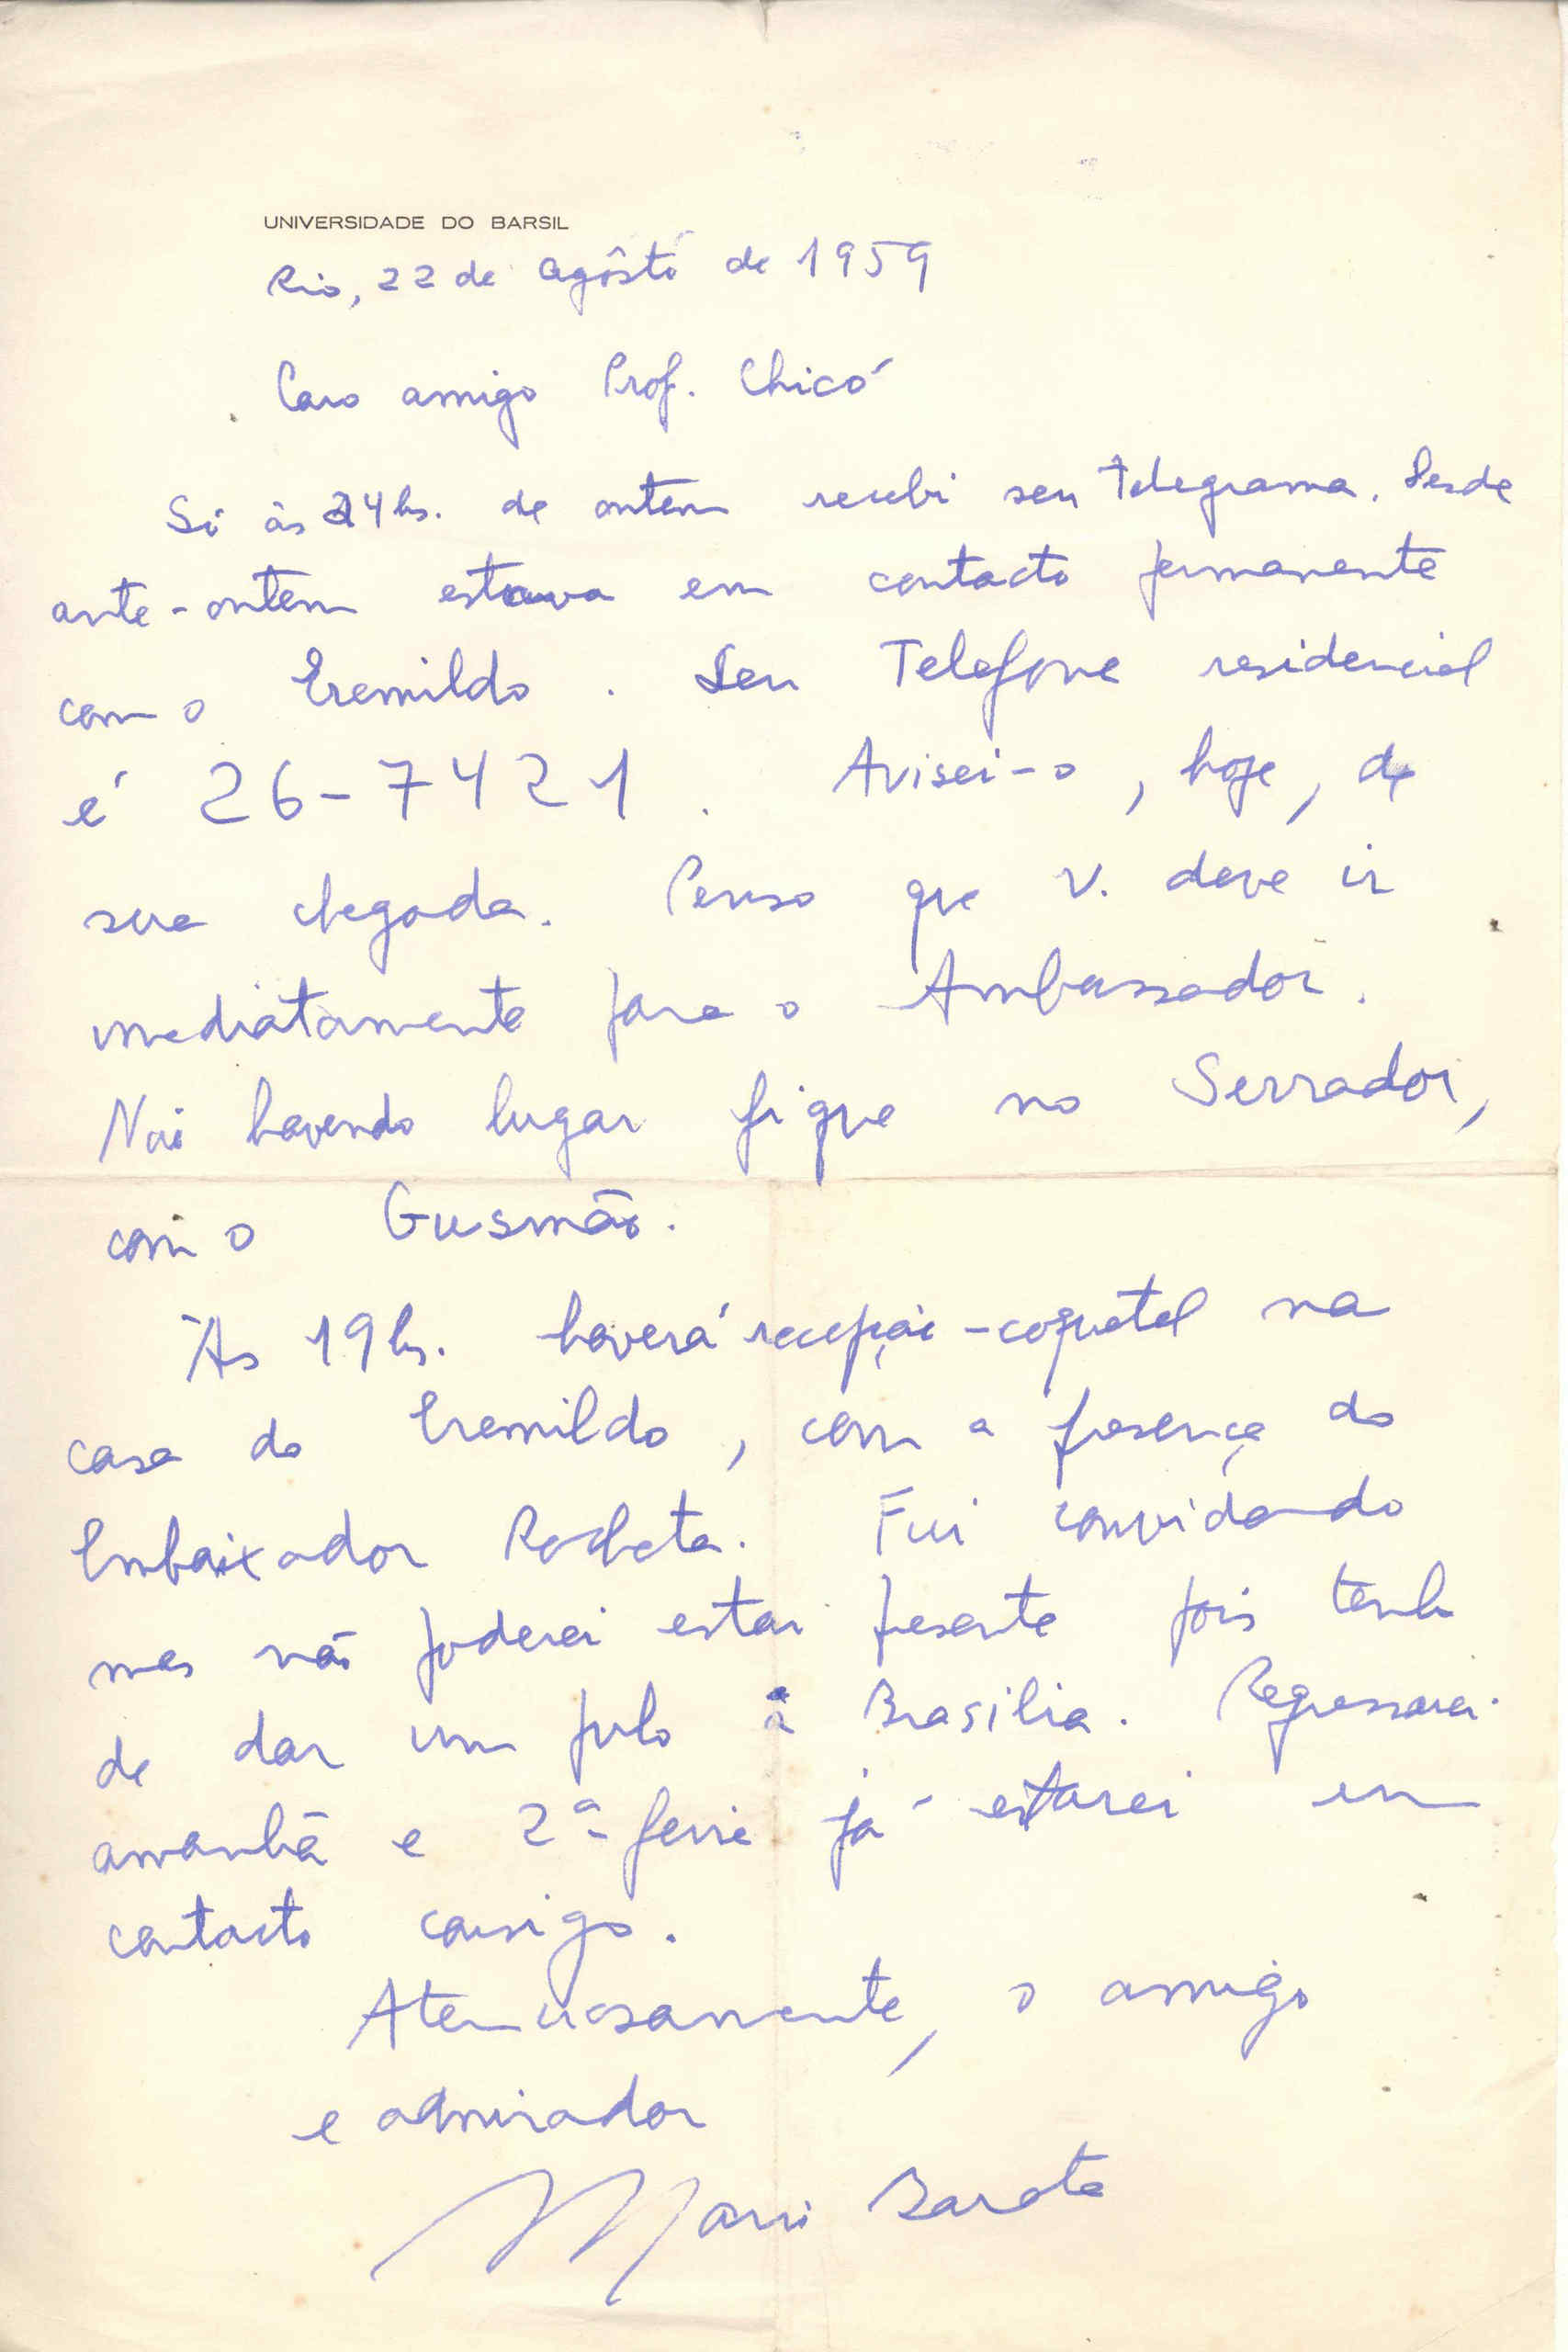 UNIVERSIDADE DO BARSIL
Rio, 22 de agôsto de 1959
Caro amigo Prof. Chicó
Só às 24 hs. de ontem recebi seu telegrama. Desde
ante-ontem estava em contacto permanente
com o Eremildo. Seu Telefone residencial
é 26-7421. Avisei-o, hoje, de
sua chegada. Penso que V. deve ir
imediatamente para o Ambassador.
Não havendo lugar fique no Serrador,
com o Gusmão.
Às 19 hs. haverá recepção-coquetel na
casa do Eremildo, com a presença do
Embaixador Rocheta. Fui convidado
mas não poderei estar presente pois tenho
de dar um pulo à Brasilia. Regressarei
amanhã e 2ª-feira já estarei em
contacto consigo.
Atenciosamente, o amigo
e admirador
Mario Barata